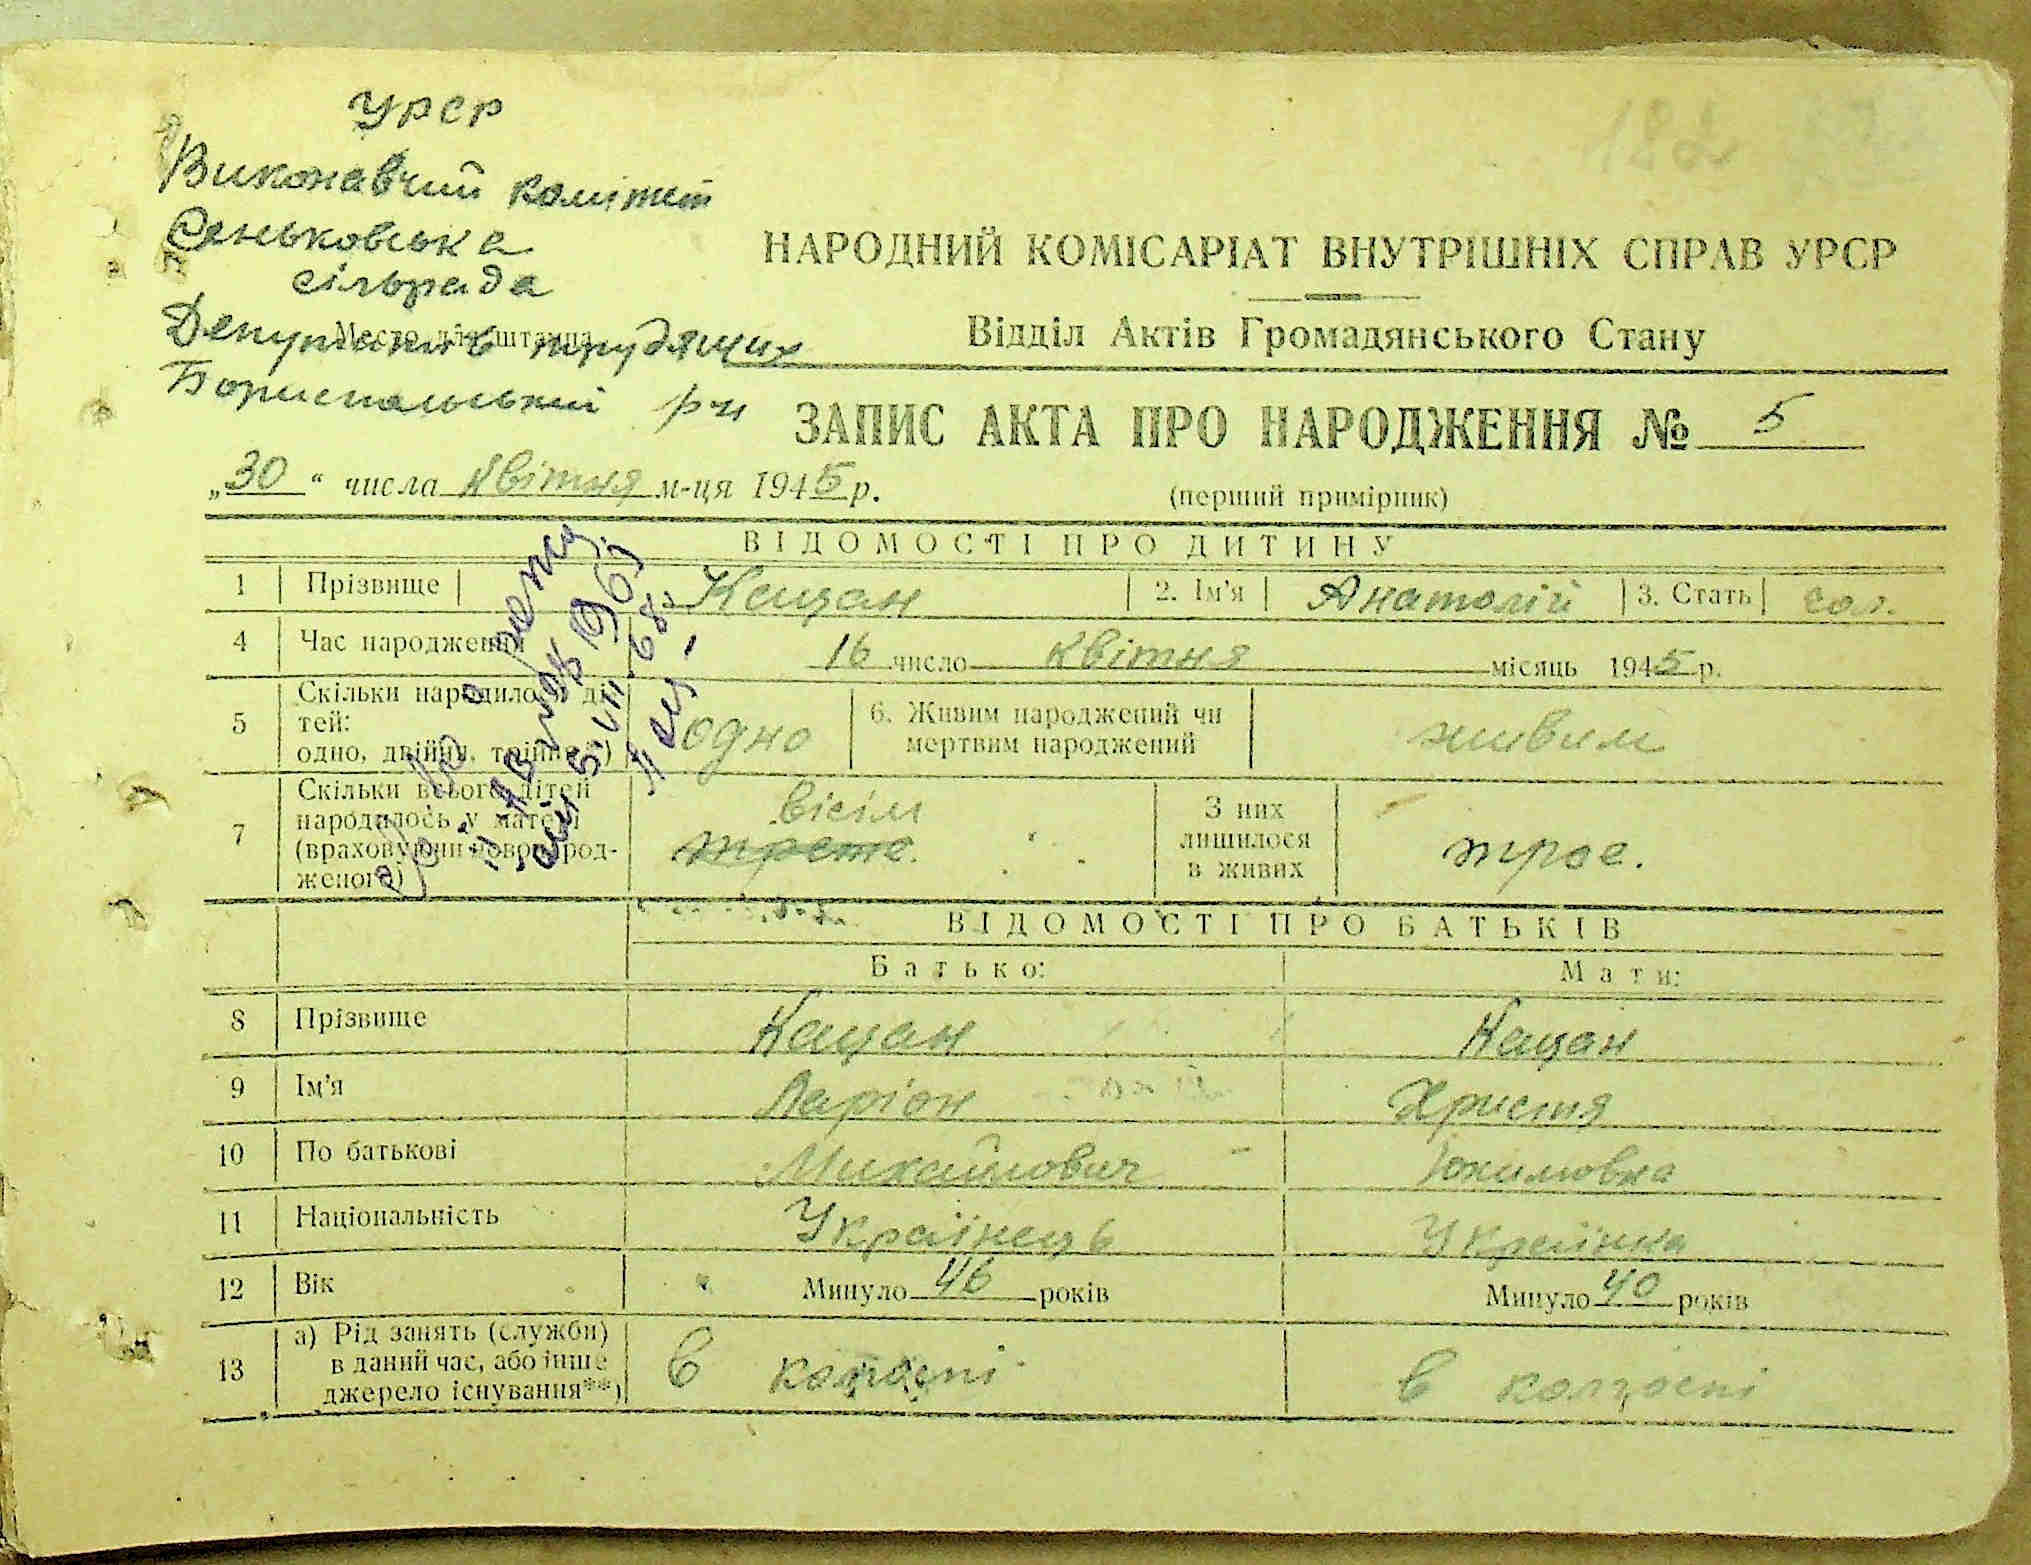 182
УРСР
Виконавчий комітет
Сеньковська
сільрада
Депутатів трудящих
Бориспольський р-н
Место для штампа
НАРОДНИЙ КОМІСАРІАТ ВНУТРІШНІХ СПРАВ УРСР
Відділ Актів Громадянського Стану
ЗАПИС АКТА ПРО НАРОДЖЕННЯ № 5
„30“ числа квітня м-ця 1945 р.
(перший примірник)
ВІДОМОСТІ ПРО ДИТИНУ
1 Прізвище Кацан 2. Ім'я Анатолій 3. Стать чол.
4 Час народження 16 число квітня місяць 1945 р.
5 Скільки народилося дітей: одно, двійни, трійни*) одно 6. Живим народжений чи мертвим народжений живим
7 Скільки всього дітей народилось у матері (враховуючи новонародженого) вісім трете. З них лишилося в живих троє.
ВІДОМОСТІ ПРО БАТЬКІВ
Батько: Мати:
8 Прізвище Кацан Кацан
9 Ім'я Ларіон Христя
10 По батькові Михайлович Юхимовна
11 Національність Українець Українка
12 Вік Минуло 46 років Минуло 40 років
13 а) Рід занять (служби) в даний час, або інше джерело існування**) в колгоспі в колгоспі